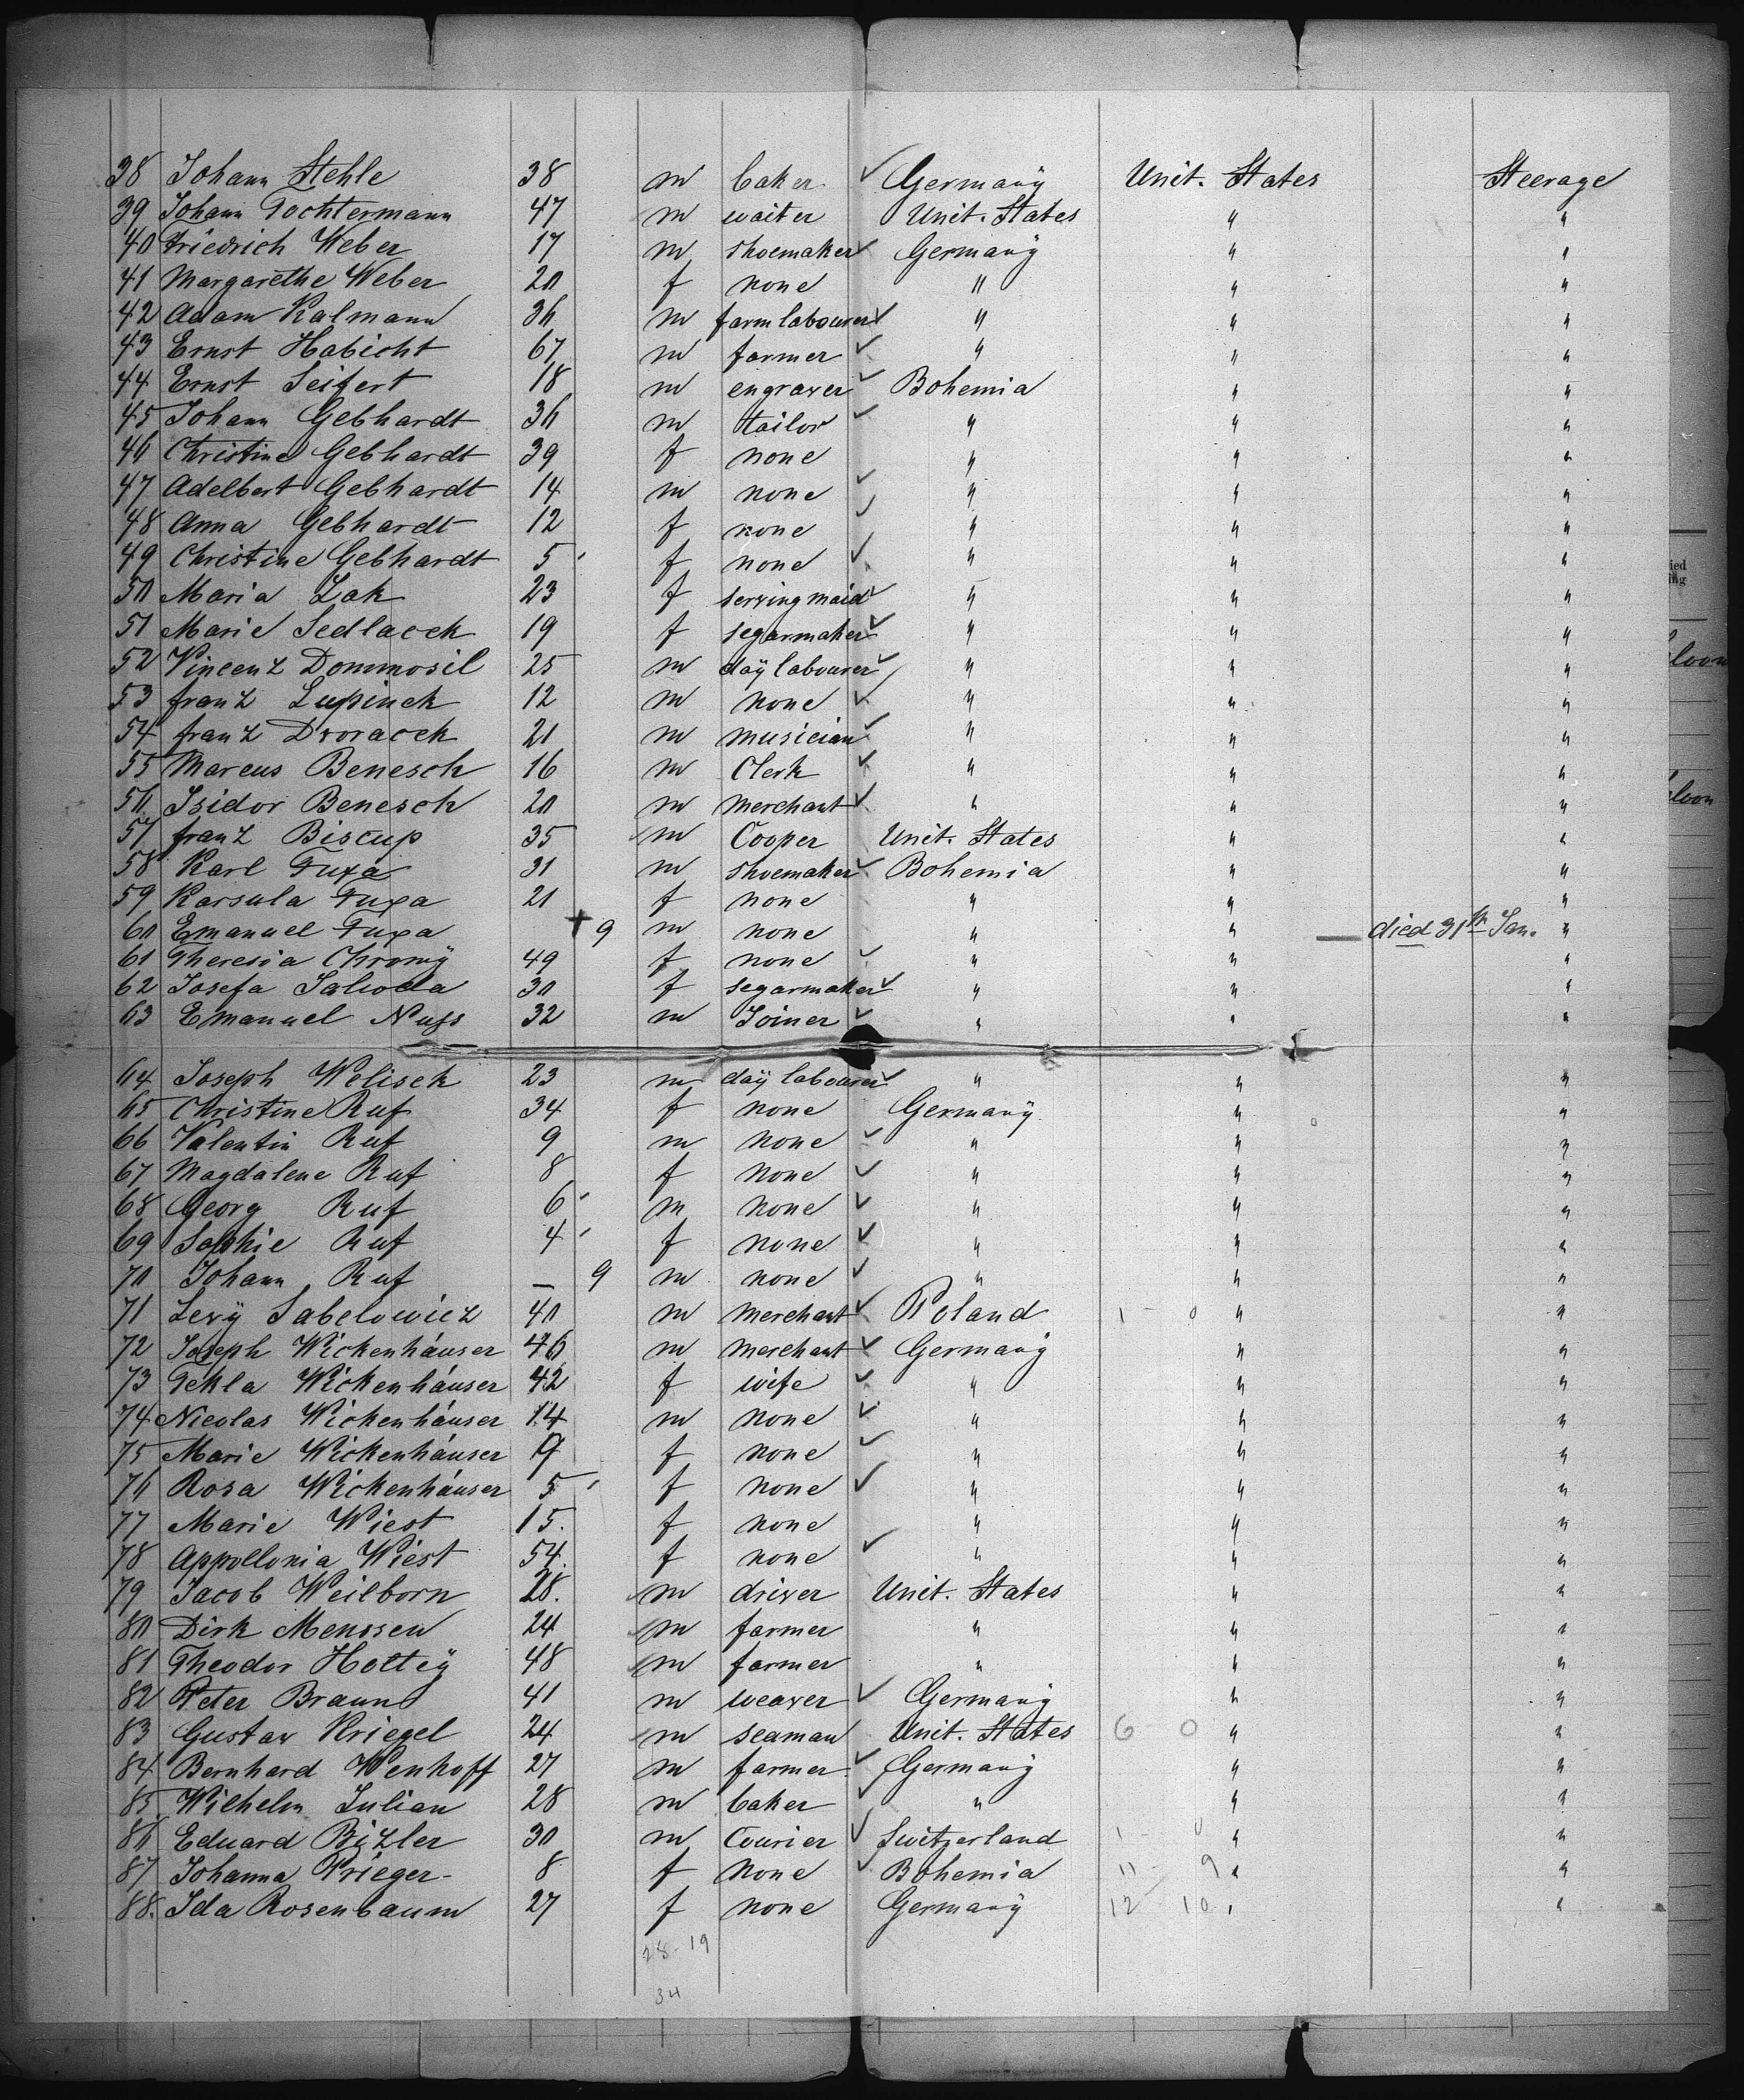 38 Johann Stehle 38 m baker ✓ Germany Unit. States Steerage
39 Johann Tochtermann 47 m waiter Unit. States " "
40 Friedrich Weber 17 m shoemaker ✓ Germany " "
41 Margarethe Weber 20 f none " " "
42 Adam Kalmann 36 m farm labourer ✓ " " "
43 Ernst Habicht 67 m farmer ✓ " " "
44 Ernst Seifert 18 m engraver ✓ Bohemia " "
45 Johann Gebhardt 36 m tailor ✓ " " "
46 Christine Gebhardt 39 f none " " "
47 Adelbert Gebhardt 14 m none ✓ " " "
48 Anna Gebhardt 12 f none ✓ " " "
49 Christine Gebhardt 5 f none ✓ " " "
50 Maria Zak 23 f serving maid ✓ " " "
51 Marie Sedlacek 19 f segarmaker ✓ " " "
52 Vincenz Dommosil 25 m day labourer ✓ " " "
53 Franz Lupinek 12 m none ✓ " " "
54 Franz Dvoracek 21 m musician ✓ " " "
55 Marcus Benesch 16 m Clerk ✓ " " "
56 Isidor Benesch 20 m merchant ✓ " " "
57 Franz Biscup 35 m Cooper Unit. States " "
58 Karl Fuxa 31 m shoemaker ✓ Bohemia " "
59 Karsula Fuxa 21 f none " " "
60 Emanuel Fuxa + 9 m none " " — died 31th Jan. "
61 Theresia Chromy 49 f none ✓ " " "
62 Josefa 30 f segarmaker ✓ " " "
63 Emanuel Nuss 32 m Joiner ✓ " " "
64 Joseph Welisek 23 m day labourer ✓ " " "
65 Christine Ruf 34 f none Germany " "
66 Valentin Ruf 9 m none ✓ " " "
67 Magdalene Ruf 8 f none ✓ " " "
68 Georg Ruf 6 m none ✓ " " "
69 Sophie Ruf 4 f none ✓ " " "
70 Johann Ruf — 9 m none ✓ " " "
71 Levy Sabelowicz 40 m merchant ✓ Poland 1 - 0 " "
72 Joseph Wickenháuser 46 m merchant ✓ Germany " "
73 Tekla Wickenháuser 42 f wife ✓ " " "
74 Nicolas Wickenháuser 14 m none ✓ " " "
75 Marie Wickenháuser 9 f none ✓ " " "
76 Rosa Wickenháuser 5 f none ✓ " " "
77 Marie Wiest 15. f none " " "
78 Appollonia Wiest 54. f none ✓ " " "
79 Jacob Weilborn 28. m driver Unit. States " "
80 Dirk Menssen 24 m farmer " " "
81 Theodor Holtey 48 m farmer " " "
82 Peter Braun 41 m weaver ✓ Germany " "
83 Gustav Kriegel 24 m seaman Unit. States 6 0 " "
84 Bernhard Wenhoff 27 m farmer ✓ Germany " "
85 Wilhelm Julian 28 m baker ✓ " " "
86 Eduard Bizler 30 m Courier ✓ Switzerland 1 - 0 " "
87 Johanna Prieger 8 f none ✓ Bohemia 11 - 9 " "
88. Ida Rosenbaum 27 f none Germany 12 10 " "
28 - 19
34